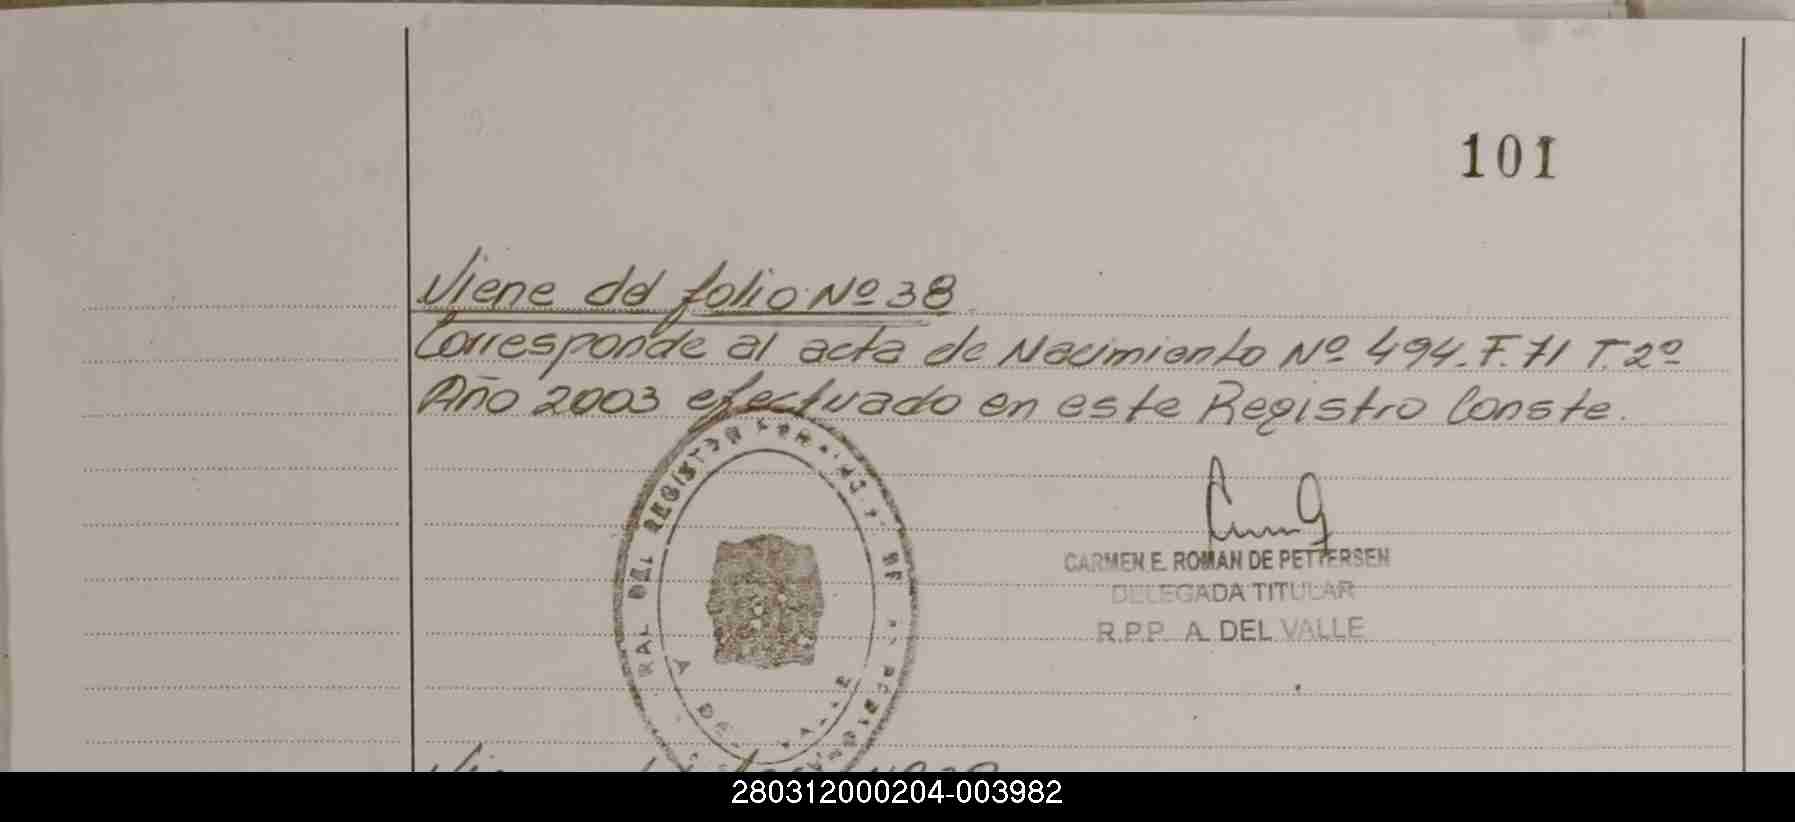 101
Viene del folio Nº 38
Corresponde al acta de Nacimiento Nº 494. F. 71 T. 2º
Año 2003 efectuado en este Registro Conste.
RAL DEL REGISTRO
A DE
CARMEN E. ROMAN DE PETTERSEN
DELEGADA TITULAR
R.P.P. A. DEL VALLE
280312000204-003982